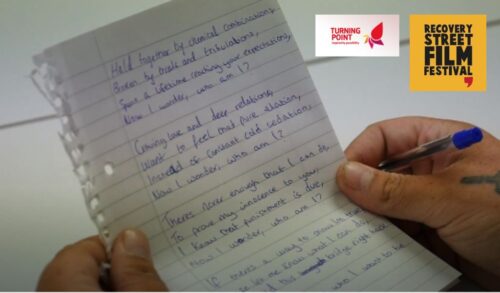 Held together by chemical combinations,
Driven by trials and tribulations,
Spent a lifetime creating your expectations,
Now I wonder, who am I?
Craving love and deep relations,
Want to feel that pure elation,
Instead of constant cold sedation,
Now I wonder, who am I?
Theres Never enough that I can do,
To prove my innocence to you,
I know that punishment is due,
Now I wonder, who am I?
If theres a way to
let me know what I can do
bridge right
who I want to be
TURNING
POINT
inspiring possibility
RECOVERY
STREET
FILM
FESTIVAL